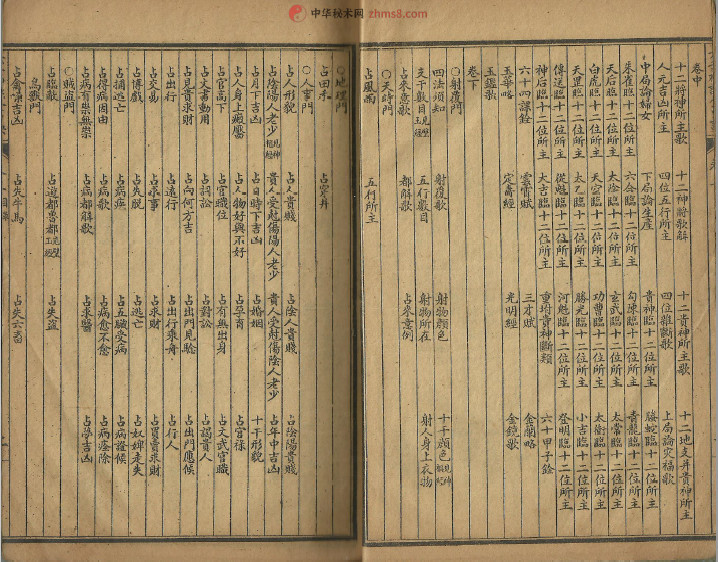 中华秘术网 zhms8.com
卷中
十二將神所主歌 十二神將歌解 十二貴神所主歌 十二地支并貴神所主
人元吉凶所主 四位五行所主 四位雜斷歌 上局論災福歌
中局論婦女 下局論生產 貴神臨十二位所主 螣蛇臨十二位所主
朱雀臨十二位所主 六合臨十二位所主 勾陳臨十二位所主 青龍臨十二位所主
天后臨十二位所主 太陰臨十二位所主 玄武臨十二位所主 太常臨十二位所主
白虎臨十二位所主 天空臨十二位所主 功曹臨十二位所主 太衝臨十二位所主
天罡臨十二位所主 太乙臨十二位所主 勝光臨十二位所主 小吉臨十二位所主
傳送臨十二位所主 從魁臨十二位所主 河魁臨十二位所主 登明臨十二位所主
神后臨十二位所主 大吉臨十二位所主 重世貴神斷類 六十甲子餘
六十四課餘 雲霄賦 三才賦 金蘭略
玉華略 定裔經 光明經 金鏡歌
玉鑑歌
卷下
○射覆門
四法須知 射覆歌 射物顏色 十干顏色
支干數目 五行數目 射物所在 射人身上衣物
占來意歌 都解歌 占來意例
○天時門
占風雨 五門所主
○地理門
占田禾 占穿井
○人事門
占人形貌 占人貴賤 占陰人貴賤 占陰陽貴賤
占陰陽人老少 貴人受尅傷陽人老少 貴人受尅傷陰人老少 占年中吉凶
占月下吉凶 占日時下吉凶 占婚姻 十干形貌
占人身上瘢靨 占人物好與不好 占孕育 占官祿
占官高下 占官職位 占有無出身 占文武官職
占文書動用 占詞訟 占對訟 占謁貴人
占見貴求財 占向何方吉 占出門見驗 占出門應候
占出行 占遠行 占出行乘舟 占行人
占交易 占求事 占求財 占買賣求財
占博戲 占失脫 占逃亡 占奴婢走失
占捕逃亡 占病症 占五臟受病 占病證候
占得病因由 占病歌 占病愈不愈 占病痊除
占病有祟無祟 占病都解歌 占求醫 占夢吉凶
○賊盜門
占臨敵 占遊都魯都 占失盜
鳥獸門
占禽鳴吉凶 占失牛馬 占失六畜